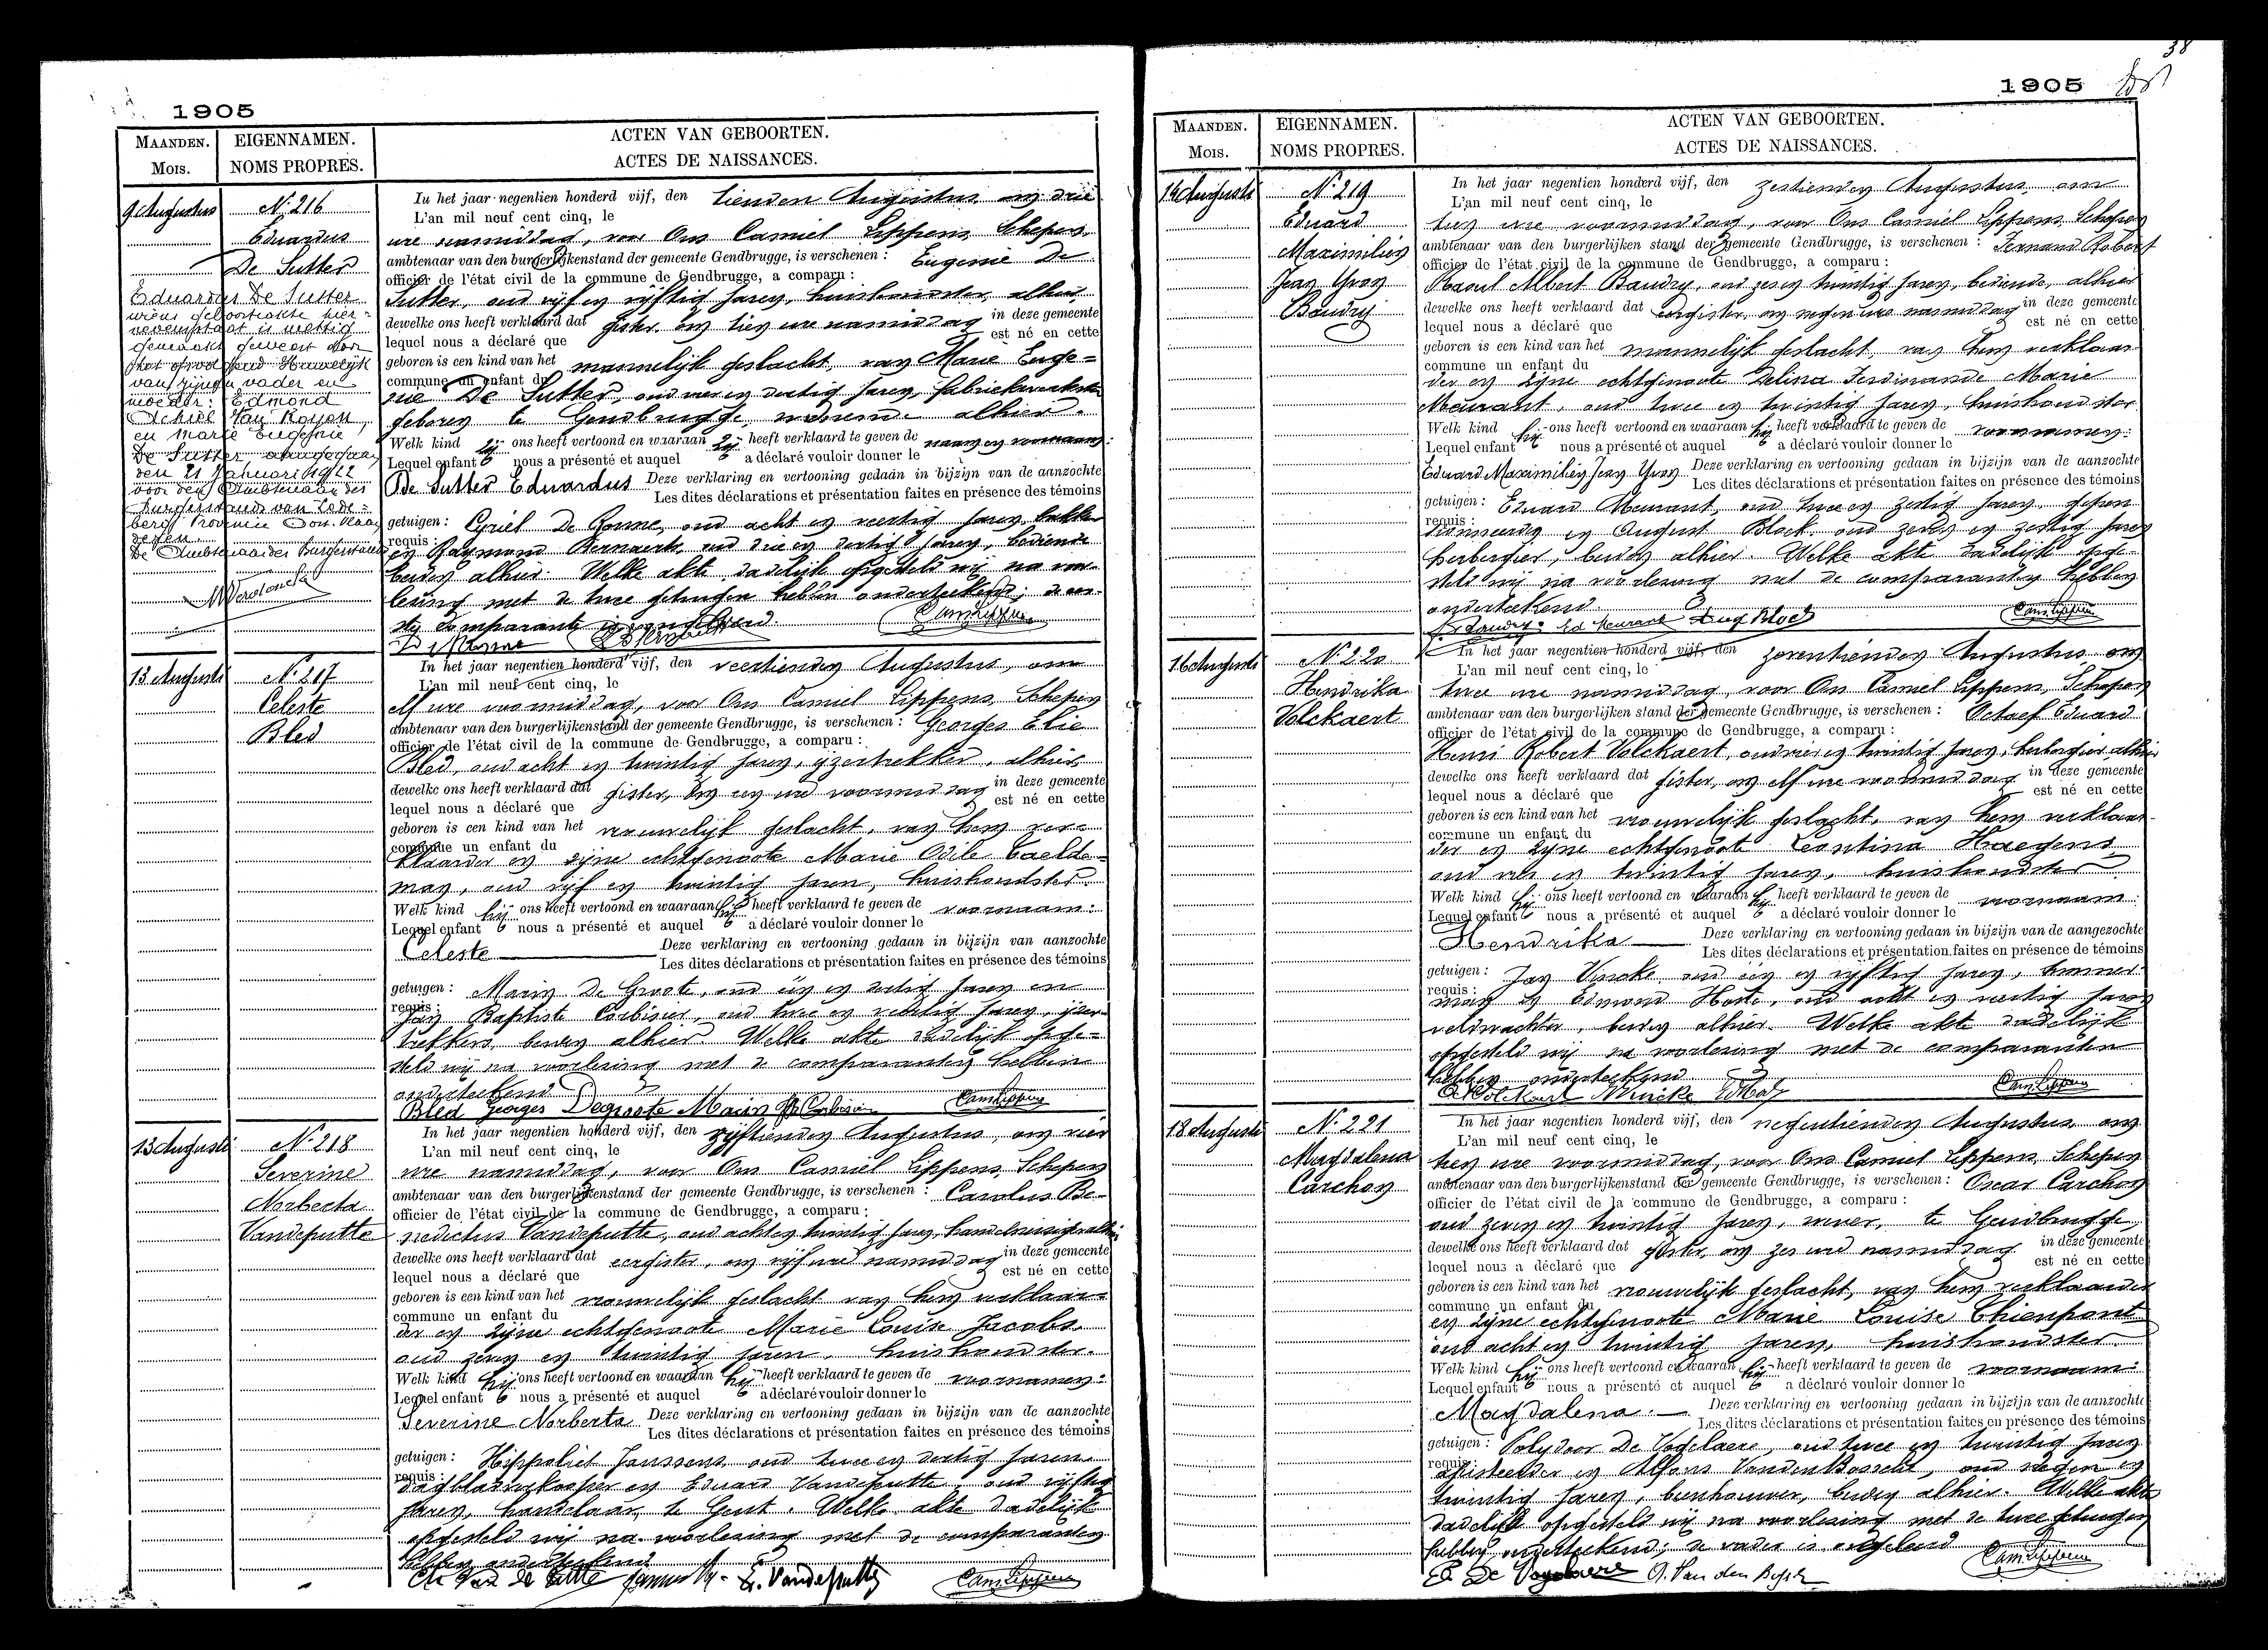 1905
MAANDEN.
Mois.
EIGENNAMEN.
NOMS PROPRES.
ACTEN VAN GEBOORTEN.
ACTES DE NAISSANCES.
9 Augustus
N. 216
Eduardus
De Sutter
Eduardus De Sutter
wiens geboorteakte hier-
nevenstaat is wettig
gemaakt geweest door
het opvolgend Huwelijk
van zijnen vader en
moeder: Edmond
Achiel Van
en Marie Eugenie
De Sutter aangegaan
den 21 Januari 1922
voor den Ambtenaar des
Burgerstands van Lede-
berg Provincie Oost Vlaan
deren.
De Ambtenaar des Burgerstands
In het jaar negentien honderd vijf, den tienden Augustus, om drie
L'an mil neuf cent cinq, le
ure namiddag, voor Ons Camiel Lippens, Schepen,
ambtenaar van den burgerlijkenstand der gemeente Gendbrugge, is verschenen : Eugenie De
officier de l'état civil de la commune de Gendbrugge, a comparu :
Sutter, oud vijf en vijftig jaren, huishoudster, alhier,
dewelke ons heeft verklaard dat gister, om tien ure namiddag in deze gemeente
lequel nous a déclaré que est né en cette
geboren is een kind van het mannelijk geslacht, van Marie Euge-
commune un enfant du
nie De Sutter, oud vier en dertig jaren, fabriekwerkster
geboren te Gendbrugge, wonende alhier.
Welk kind zij ons heeft vertoond en waaraan zij heeft verklaard te geven de naam en voornaam:
Lequel enfant nous a présenté et auquel a déclaré vouloir donner le
De Sutter Eduardus Deze verklaring en vertooning gedaan in bijzijn van de aanzochte
Les dites déclarations et présentation faites en présence des témoins
getuigen : Cyriel De Conne, oud acht en veertig jaren, bakker
requis :
en Raymond Bernaert, oud drie en dertig jaren, bediende
beiden alhier. Welke akte dadelijk opgesteld wij na voor-
lezing met de twee getuigen hebben onderteekend; de eer-
ste comparante is ongeleerd.
Cam Lippens
13 Augusti
N. 217
Celeste
Bled
In het jaar negentien honderd vijf, den veertienden Augustus, om
L'an mil neuf cent cinq, le
elf ure voormiddag, voor Ons Camiel Lippens, Schepen
ambtenaar van den burgerlijkenstand der gemeente Gendbrugge, is verschenen : Georges Elie
officier de l'état civil de la commune de Gendbrugge, a comparu :
Bled, oud acht en twintig jaren, ijzertrekker, alhier,
dewelke ons heeft verklaard dat gister, om een ure voormiddag in deze gemeente
lequel nous a déclaré que est né en cette
geboren is een kind van het vrouwelijk geslacht, van hem ver-
commune un enfant du
klaarder en zijne echtgenoote Marie Odile Caelde-
man, oud vijf en twintig jaren, huishoudster.
Welk kind hij ons heeft vertoond en waaraan hij heeft verklaard te geven de voornaam:
Lequel enfant nous a présenté et auquel a déclaré vouloir donner le
Celeste Deze verklaring en vertooning gedaan in bijzijn van aanzochte
Les dites déclarations et présentation faites en présence des témoins
getuigen : Marin De Groote, oud een en dertig jaren en
requis :
Jan Baptiste Corbisier, oud twee en veertig jaren, ijzer-
trekkers, beiden alhier. Welke akte dadelijk opge-
steld wij na voorlezing met de comparanten hebben
onderteekend
Bled Georges Degroote Marin Cam Lippens
13 Augusti
N. 218
Severine
Norberta
Vandeputte
In het jaar negentien honderd vijf, den vijftienden Augustus, om vier
L'an mil neuf cent cinq, le
ure namiddag, voor Ons Camiel Lippens, Schepen
ambtenaar van den burgerlijkenstand der gemeente Gendbrugge, is verschenen : Carolus Be-
officier de l'état civil de la commune de Gendbrugge, a comparu :
nedictus Vandeputte, oud acht en twintig jaren, handelreiziger, alhier,
dewelke ons heeft verklaard dat eergister, om vijf ure namiddag in deze gemeente
lequel nous a déclaré que est né en cette
geboren is een kind van het vrouwelijk geslacht van hem verklaar-
commune un enfant du
der en zijne echtgenoote Marie Louise Jacobs,
oud zeven en twintig jaren, huishoudster.
Welk kind hij ons heeft vertoond en waaraan hij heeft verklaard te geven de voornamen:
Lequel enfant nous a présenté et auquel a déclaré vouloir donner le
Severine Norberta Deze verklaring en vertooning gedaan in bijzijn van de aanzochte
Les dites déclarations et présentation faites en présence des témoins
getuigen : Hippoliet Janssens, oud twee en dertig jaren
requis :
dagbladverkooper en Eduard Vandeputte, oud vijftig
jaren, handelaar, te Gent. Welke akte dadelijk
opgesteld wij na voorlezing met de comparanten
hebben onderteekend
Ch Van de Putte E. Vandeputte Cam Lippens
38
1905
MAANDEN.
Mois.
EIGENNAMEN.
NOMS PROPRES.
ACTEN VAN GEBOORTEN.
ACTES DE NAISSANCES.
14 Augusti
N. 219
Eduard
Maximilien
Jean Yvon
Baudry
In het jaar negentien honderd vijf, den zestienden Augustus, om
L'an mil neuf cent cinq, le
tien ure voormiddag, voor Ons Camiel Lippens, Schepen
ambtenaar van den burgerlijken stand der gemeente Gendbrugge, is verschenen : Fernand Robert
officier de l'état civil de la commune de Gendbrugge, a comparu :
Raoul Albert Baudry, oud zes en twintig jaren, bediende, alhier
dewelke ons heeft verklaard dat eergister, om negen ure namiddag in deze gemeente
lequel nous a déclaré que est né en cette
geboren is een kind van het mannelijk geslacht, van hem verklaar
commune un enfant du
der en zijne echtgenoote Delina Ferdinande Marie
Meurant, oud twee en twintig jaren, huishoudster
Welk kind hij ons heeft vertoond en waaraan hij heeft verklaard te geven de voornamen:
Lequel enfant nous a présenté et auquel a déclaré vouloir donner le
Eduard Maximilien Jean Yvon Deze verklaring en vertooning gedaan in bijzijn van de aanzochte
Les dites déclarations et présentation faites en présence des témoins
getuigen : Eduard Meurant, oud twee en zestig jaren, gepen
requis :
sionneerde en August Block, oud zeven en zestig jaren
herbergier, beiden alhier. Welke akte dadelijk opge-
steld wij na voorlezing met de comparanten hebben
onderteekend
Baudry Ed Meurant Aug Block Cam Lippens
16 Augusti
N. 220
Hendrika
Volckaert
In het jaar negentien honderd vijf, den zeventienden Augustus om
L'an mil neuf cent cinq, le
twee ure namiddag, voor Ons Camiel Lippens, Schepen
ambtenaar van den burgerlijken stand der gemeente Gendbrugge, is verschenen : Octaef Eduard
officier de l'état civil de la commune de Gendbrugge, a comparu :
Henri Robert Volckaert, oud vier en twintig jaren, herbergier alhier
dewelke ons heeft verklaard dat gister, om elf ure voormiddag in deze gemeente
lequel nous a déclaré que est né en cette
geboren is een kind van het vrouwelijk geslacht, van hem verklaar-
commune un enfant du
der en zijne echtgenoote Leontina Haegens
oud en twintig jaren, huishoudster
Welk kind hij ons heeft vertoond en waaraan hij heeft verklaard te geven de voornaam:
Lequel enfant nous a présenté et auquel a déclaré vouloir donner le
Hendrika Deze verklaring en vertooning gedaan in bijzijn van de aangezochte
Les dites déclarations et présentation faites en présence de témoins
getuigen : Jan Vincke oud een en vijftig jaren, timmer-
requis :
man en Edmond Hoste, oud acht en veertig jaren
veldwachter, beiden alhier. Welke akte dadelijk
opgesteld wij na voorlezing met de comparanten
hebben onderteekend
Volckaert Vincke Cam Lippens
18 Augusti
N. 221
Magdalena
Carchon
In het jaar negentien honderd vijf, den negentienden Augustus, om
L'an mil neuf cent cinq, le
tien ure voormiddag, voor Ons Camiel Lippens, Schepen
ambtenaar van den burgerlijkenstand der gemeente Gendbrugge, is verschenen : Oscar Carchon
officier de l'état civil de la commune de Gendbrugge, a comparu :
oud zeven en twintig jaren, wever, te Gendbrugge,
dewelke ons heeft verklaard dat gister, om zes ure namiddag in deze gemeente
lequel nous a déclaré que est né en cette
geboren is een kind van het vrouwelijk geslacht, van hem verklaarder
commune un enfant du
en zijne echtgenoote Marie Louise Thienpont
oud acht en twintig jaren, huishoudster.
Welk kind hij ons heeft vertoond en waaraan hij heeft verklaard te geven de voornaam:
Lequel enfant nous a présenté et auquel a déclaré vouloir donner le
Magdalena. Deze verklaring en vertooning gedaan in bijzijn van de aanzochte
Les dites déclarations et présentation faites en présence des témoins
getuigen : Polydoor De Vogelaere, oud twee en twintig jaren
requis :
en Alfons Vanden Bossche, oud negen en
twintig jaren, beenhouwer, beiden alhier. Welke akte
dadelijk opgesteld wij na voorlezing met de twee getuigen
hebben onderteekend; de vader is ongeleerd
De Vogelaere A. Van den Bossche Cam Lippens